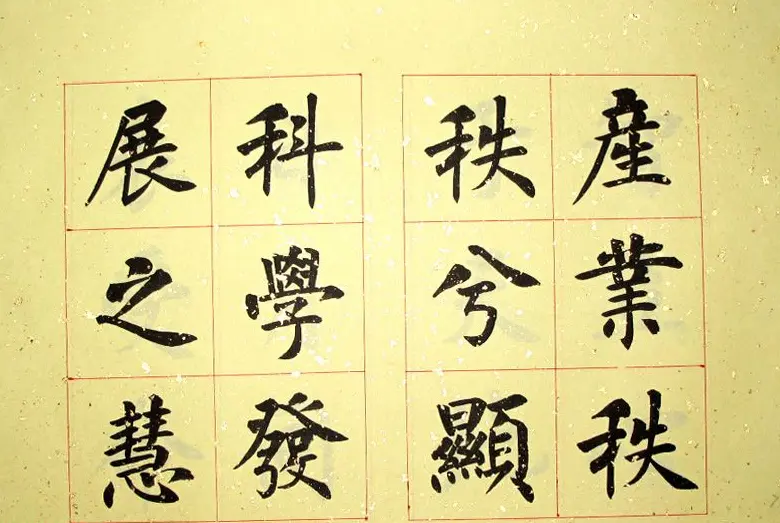 産業秩
秩兮顯
科學發
展之慧